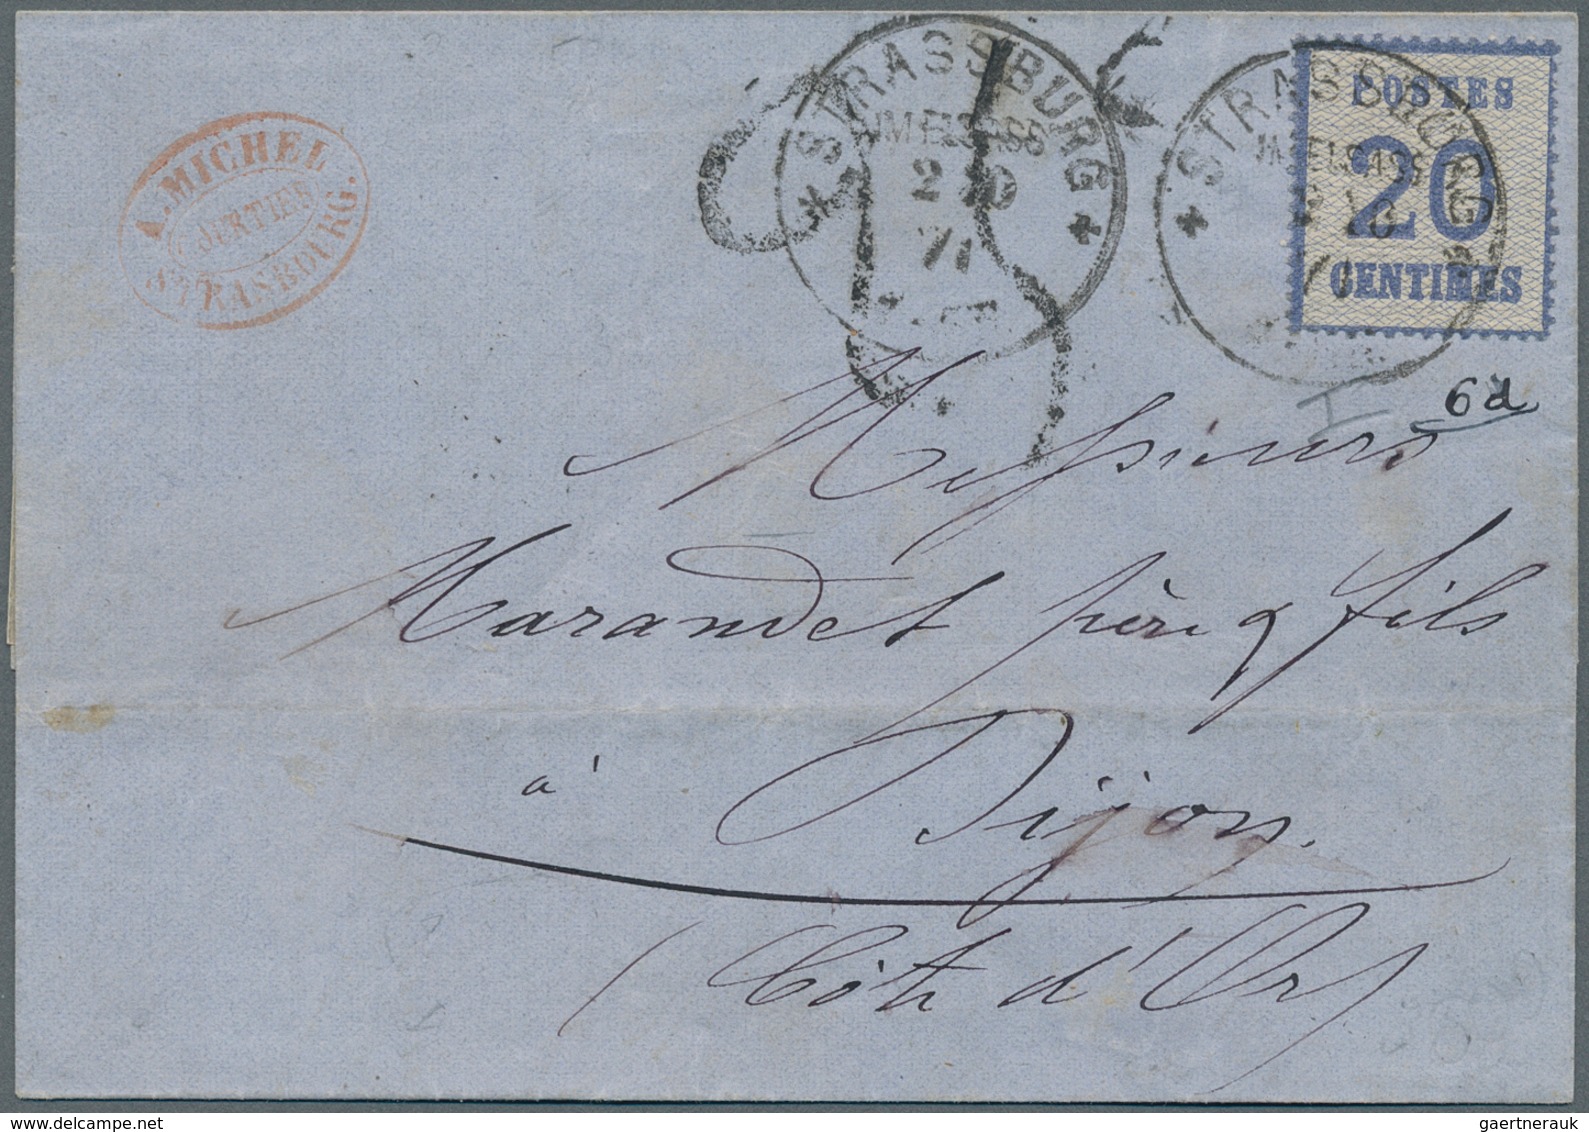 A. MICHEL
COURTIER
STRASBOURG.
STRASSBURG
IM ELSASS
2 10
71
STRASSBURG
IM ELSASS
2 10
71
POSTES
20
CENTIMES
I
6 d
Messieurs
Marandet père & fils
à Dijon.
(Côte d'Or)
gaertnerauk